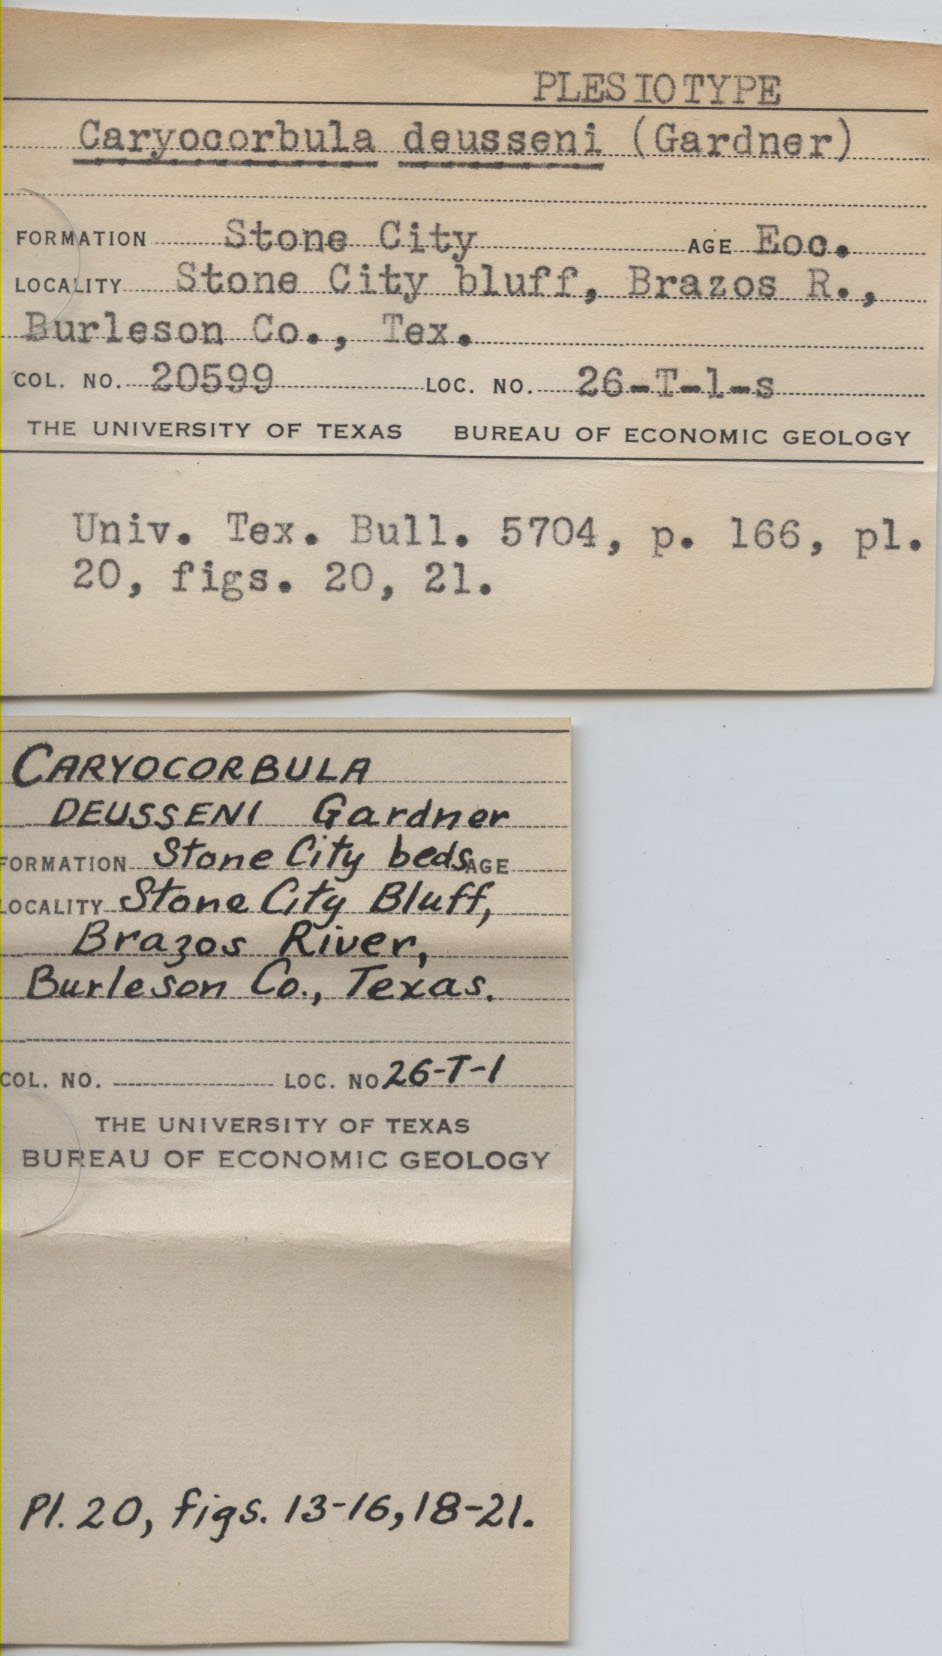 PLESIOTYPE
Caryocorbula deusseni (Gardner)
FORMATION Stone City AGE Eoc.
LOCALITY Stone City bluff, Brazos R.,
Burleson Co., Tex.
COL. NO. 20599 LOC. NO. 26-T-1-s
THE UNIVERSITY OF TEXAS BUREAU OF ECONOMIC GEOLOGY
Univ. Tex. Bull. 5704, p. 166, pl.
20, figs. 20, 21.
CARYOCORBULA
DEUSSENI Gardner
FORMATION Stone City beds AGE
LOCALITY Stone City Bluff,
Brazos River,
Burleson Co., Texas.
COL. NO. LOC. NO 26-T-1
THE UNIVERSITY OF TEXAS
BUREAU OF ECONOMIC GEOLOGY
Pl. 20, figs. 13-16, 18-21.